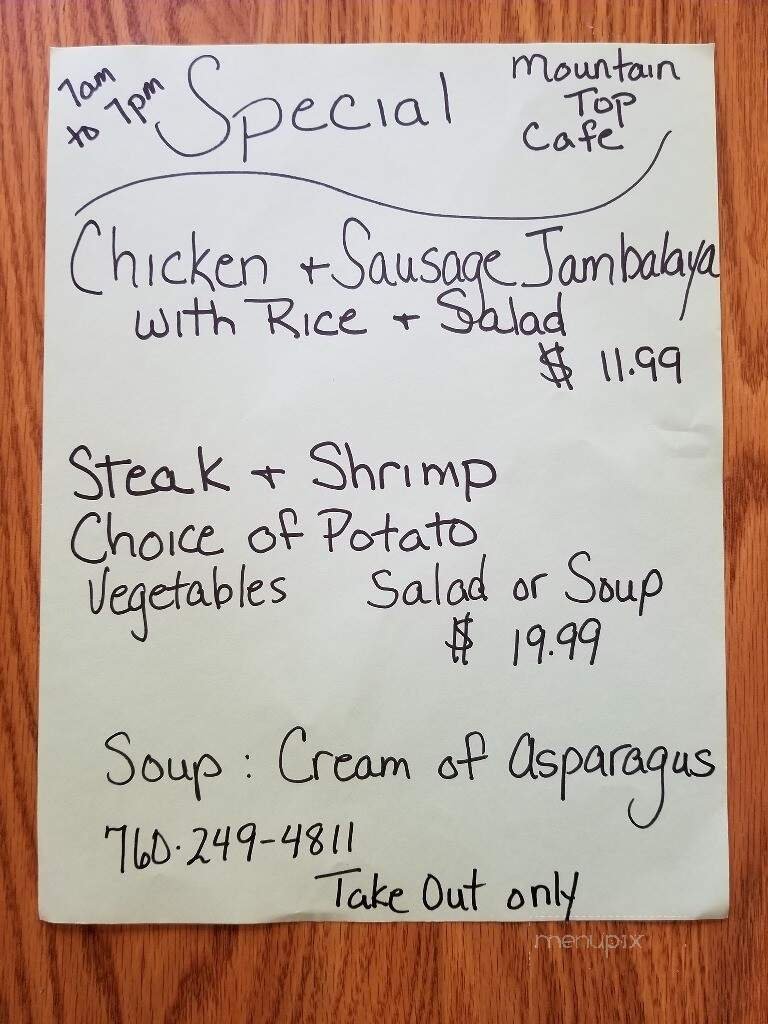 7am
to 7pm
Special
Mountain
Top
Cafe
Chicken + Sausage Jambalaya
with Rice + Salad
$ 11.99
Steak + Shrimp
Choice of Potato
Vegetables Salad or Soup
$ 19.99
Soup : Cream of Asparagus
760.249-4811
Take Out only
menupix